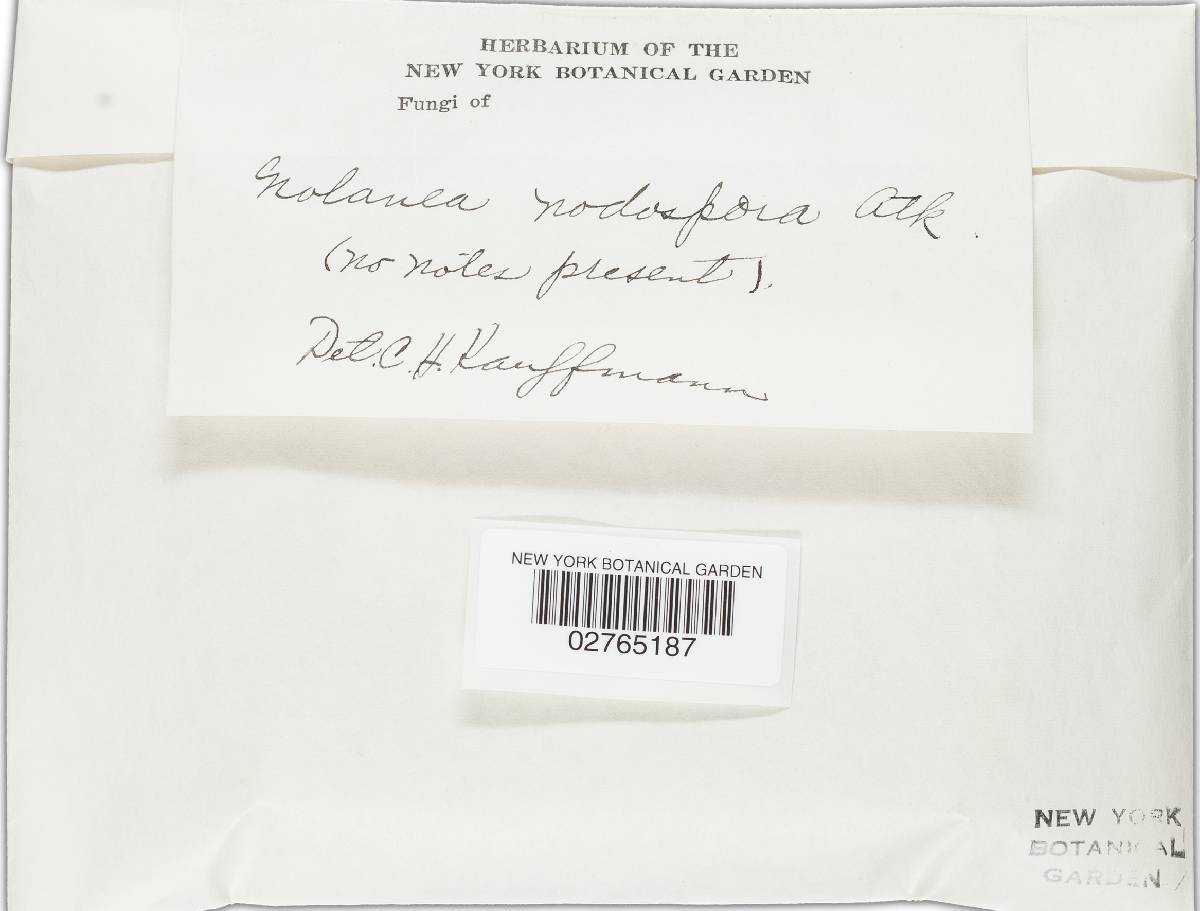 HERBARIUM OF THE
NEW YORK BOTANICAL GARDEN
Fungi of
Nolanea nodospora Atk.
(no notes present).
Det. C. H. Kauffmann
NEW YORK BOTANICAL GARDEN
02765187
NEW YORK
BOTANICAL
GARDEN